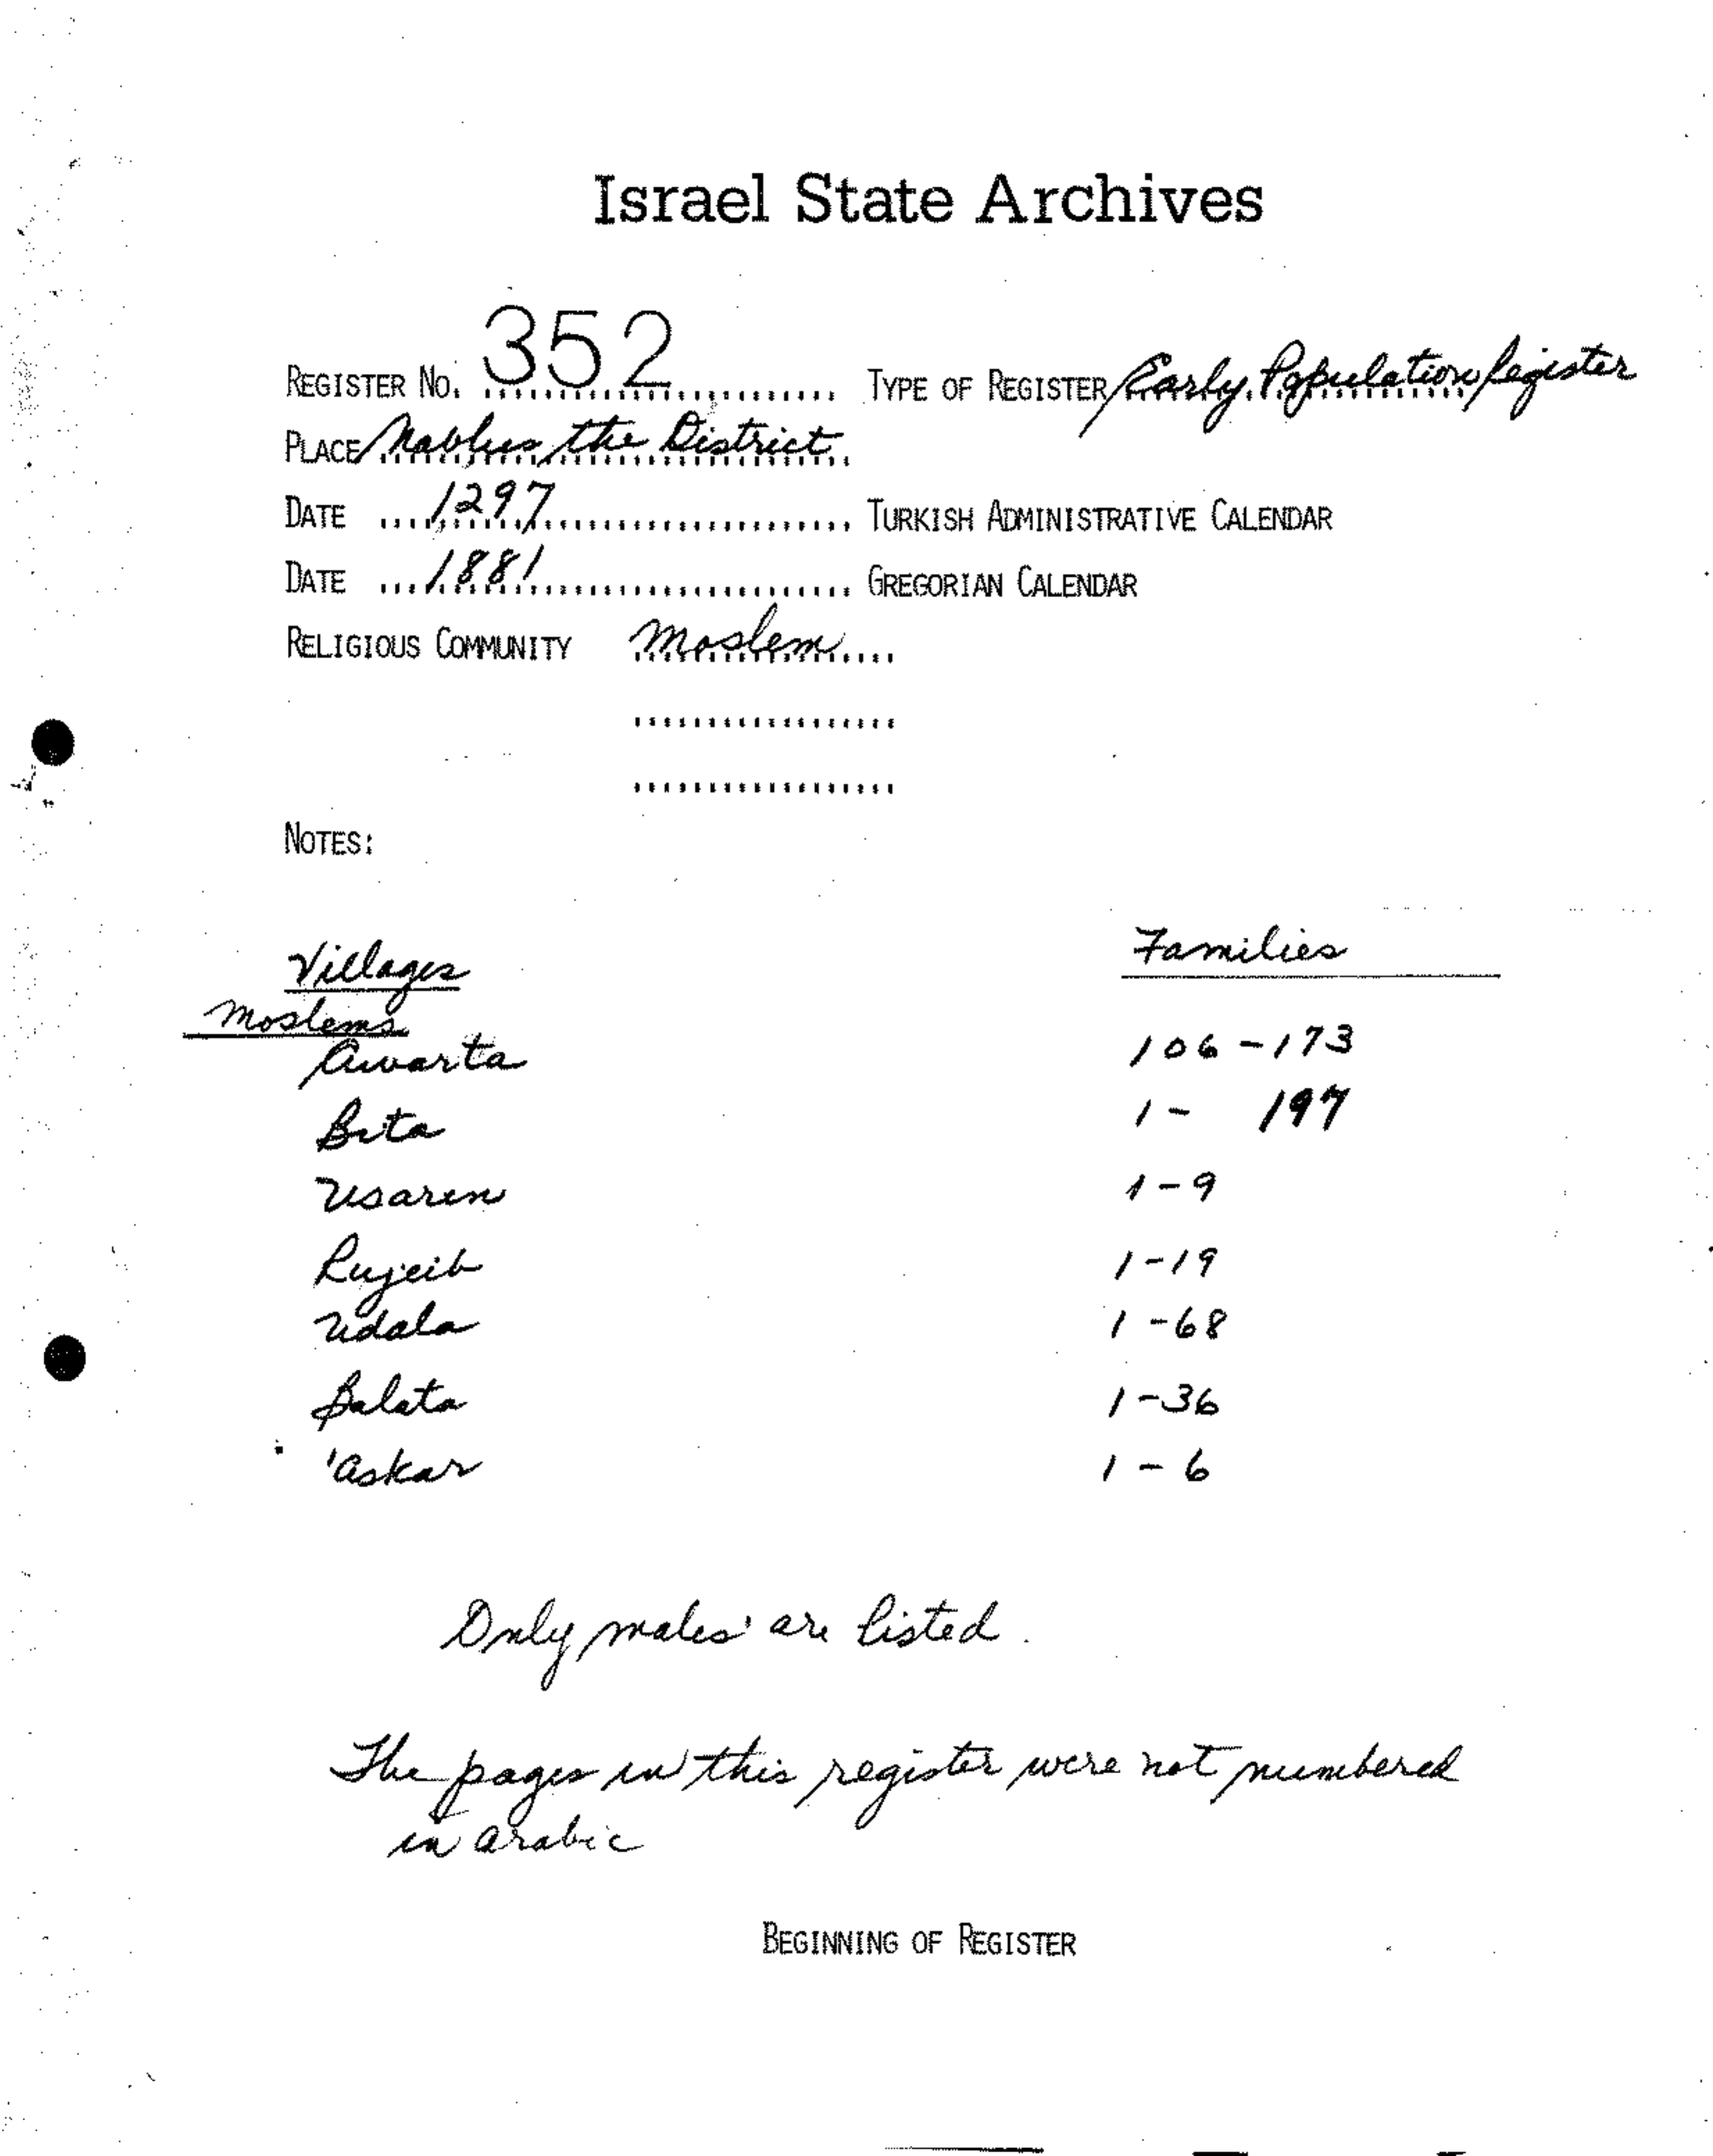 Israel State Archives
REGISTER NO. 352 TYPE OF REGISTER Early Population Register
PLACE Nablus, the District
DATE 1297 TURKISH ADMINISTRATIVE CALENDAR
DATE 1881 GREGORIAN CALENDAR
RELIGIOUS COMMUNITY Moslem
NOTES:
Villages Families
Moslems
Awarta 106-173
Bita 1- 197
Usarin 1-9
Rujeib 1-19
Udala 1-68
Balata 1-36
'Askar 1-6
Only males are listed.
The pages in this register were not numbered
in arabic
BEGINNING OF REGISTER